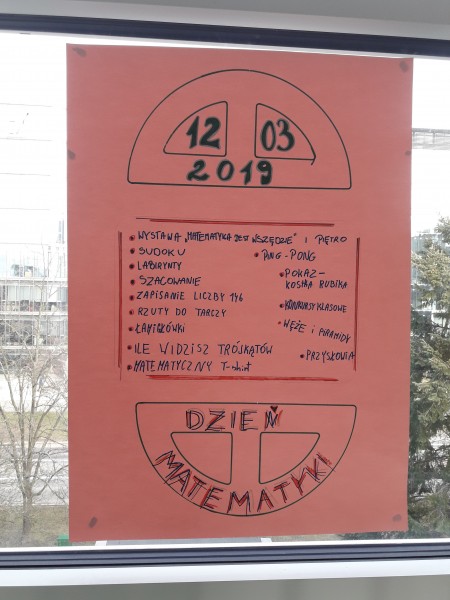 12 03
2019
WYSTAWA „MATEMATYKA JEST WSZĘDZIE" I PIĘTRO
SUDOKU
LABIRYNTY
SZACOWANIE
ZAPISANIE LICZBY 146
RZUTY DO TARCZY
ŁAMIGŁÓWKI
ILE WIDZISZ TRÓJKĄTÓW
MATEMATYCZNY T-shirt
PING-PONG
POKAZ-
KOSTKA RUBIKA
KONKURSY KLASOWE
WĘŻE i PIRAMIDY
PRZYSŁOWIA
DZIEŃ
MATEMATYKI